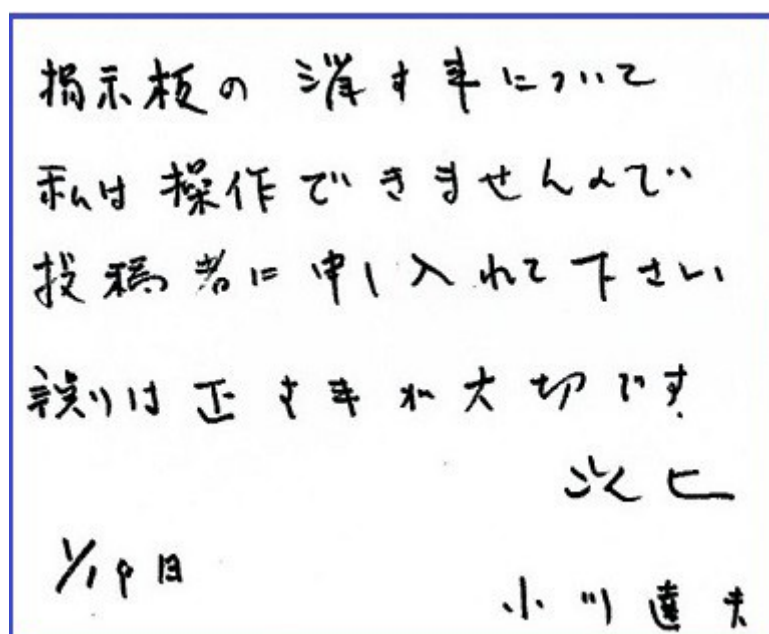 掲示板の 消す事について
私は操作できませんんで
投稿者に申し入れて下さい
誤りは正す事が大切です
以上
1/19日
小川達夫